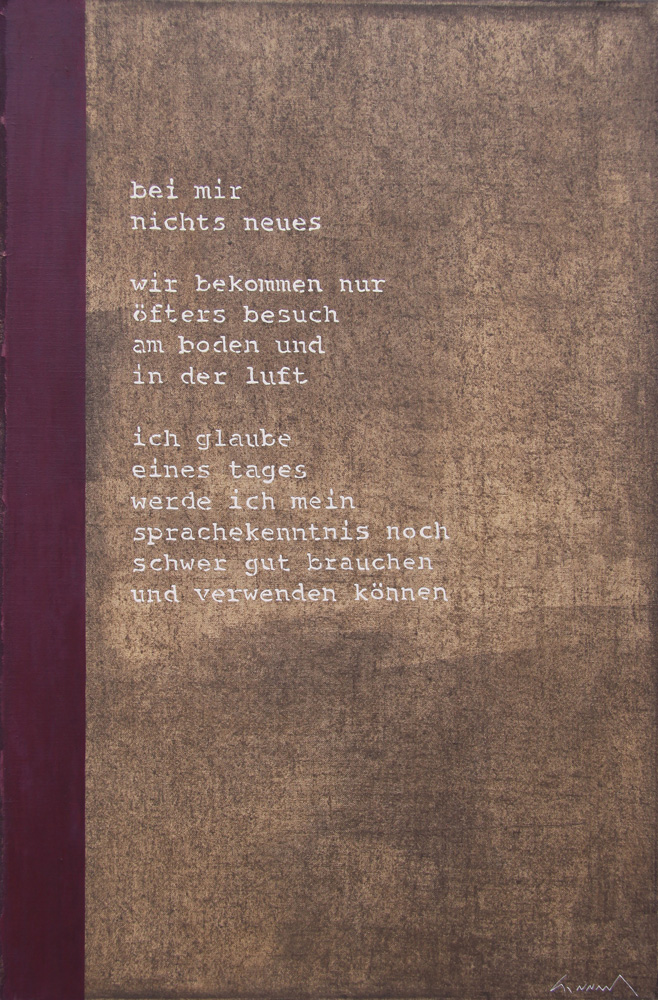 bei mir
nichts neues
wir bekommen nur
öfters besuch
am boden und
in der luft
ich glaube
eines tages
werde ich mein
sprachekenntnis noch
schwer gut brauchen
und verwenden können